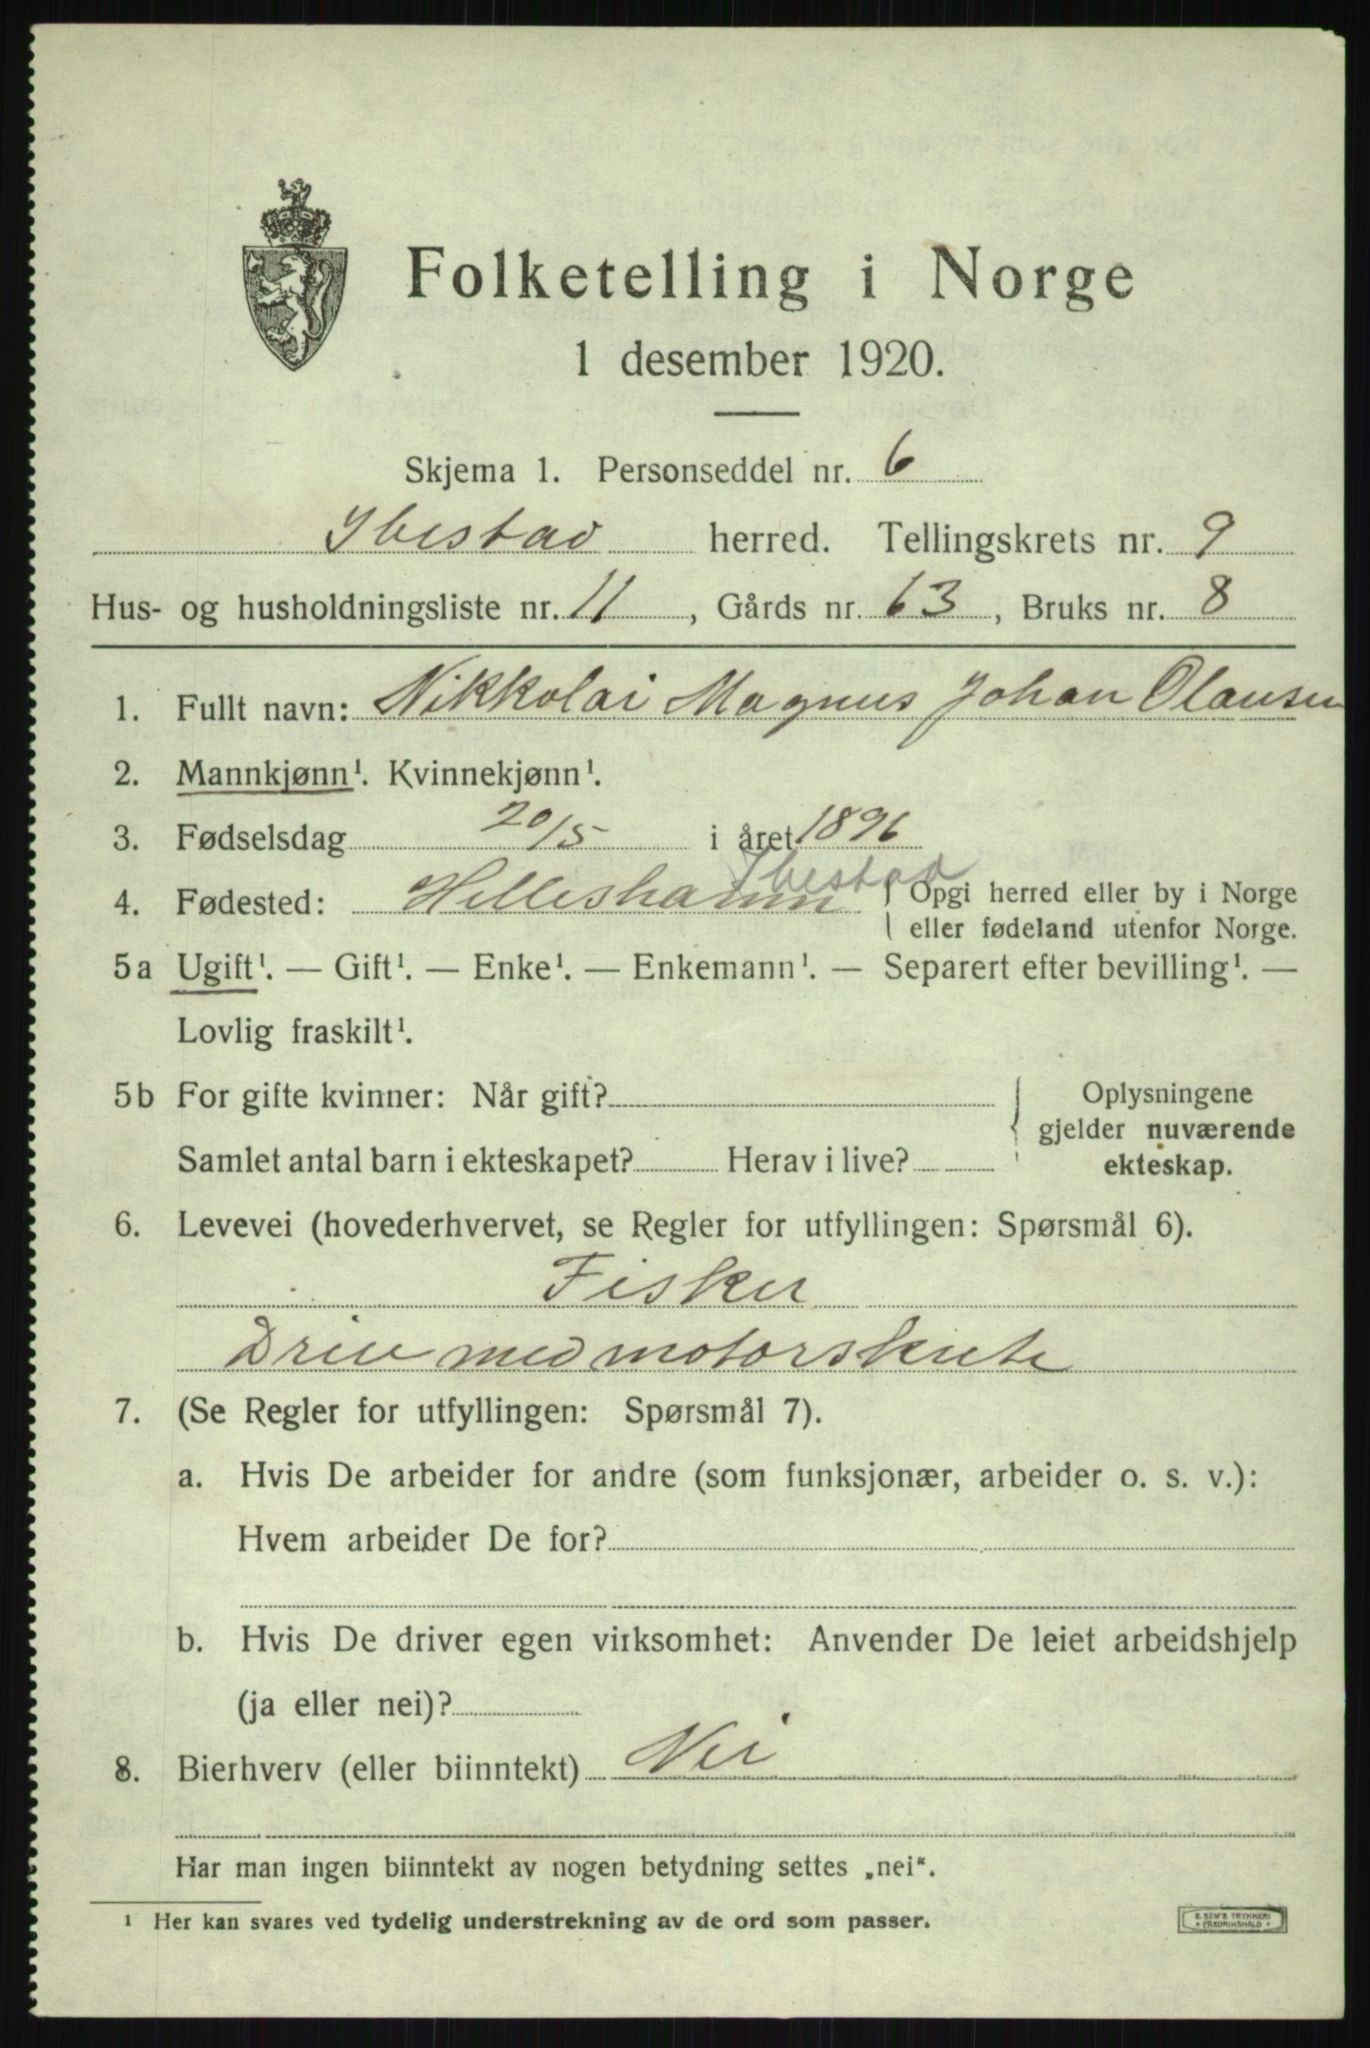 Folketelling i Norge
1 desember 1920.
Skjema 1. Personseddel nr. 6
Ibestad herred. Tellingskrets nr. 9
Hus- og husholdningsliste nr. 11, Gårds nr. 63, Bruks nr. 8
1. Fullt navn: Nikkolai Magnus Johan Olausen
2. Mannkjønn¹. Kvinnekjønn¹.
3. Fødselsdag 20/5 i året 1896
Ibestad
4. Fødested: Helleshamn { Opgi herred eller by i Norge
eller fødeland utenfor Norge.
5a Ugift¹. — Gift¹. — Enke¹. — Enkemann¹. — Separert efter bevilling¹. —
Lovlig fraskilt¹.
5b For gifte kvinner: Når gift? { Oplysningene
gjelder nuværende
Samlet antal barn i ekteskapet? Herav i live? ekteskap.
6. Levevei (hovederhvervet, se Regler for utfyllingen: Spørsmål 6).
Fisker
Driv med motorskute
7. (Se Regler for utfyllingen: Spørsmål 7).
a. Hvis De arbeider for andre (som funksjonær, arbeider o. s. v.):
Hvem arbeider De for?
b. Hvis De driver egen virksomhet: Anvender De leiet arbeidshjelp
(ja eller nei)?
8. Bierhverv (eller biinntekt) Nei
Har man ingen biinntekt av nogen betydning settes „nei“.
¹ Her kan svares ved tydelig understrekning av de ord som passer.
E. SEM'S TRYKKERI
• FREDRIKSHALD •